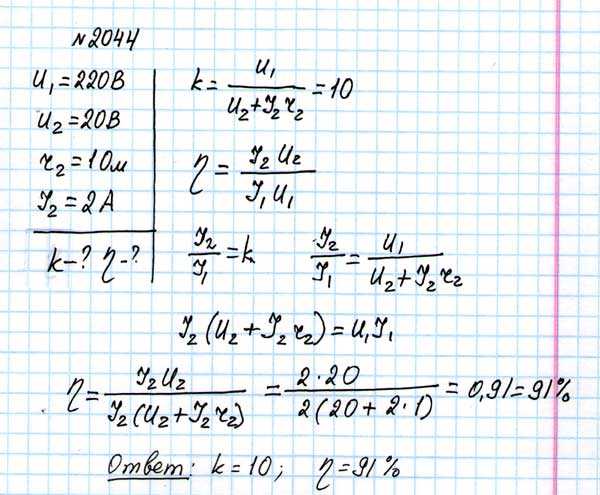 №2044
U₁=220В
U₂=20В
r₂=1Ом
I₂=2А
k-? η-?
k = U₁/(U₂+I₂r₂) = 10
η = I₂U₂/(I₁U₁)
I₂/I₁ = k I₂/I₁ = U₁/(U₂+I₂r₂)
I₂(U₂+I₂r₂)=U₁I₁
η = I₂U₂/(I₂(U₂+I₂r₂)) = 2·20/(2(20+2·1)) = 0,91=91%
Ответ: k=10; η=91%